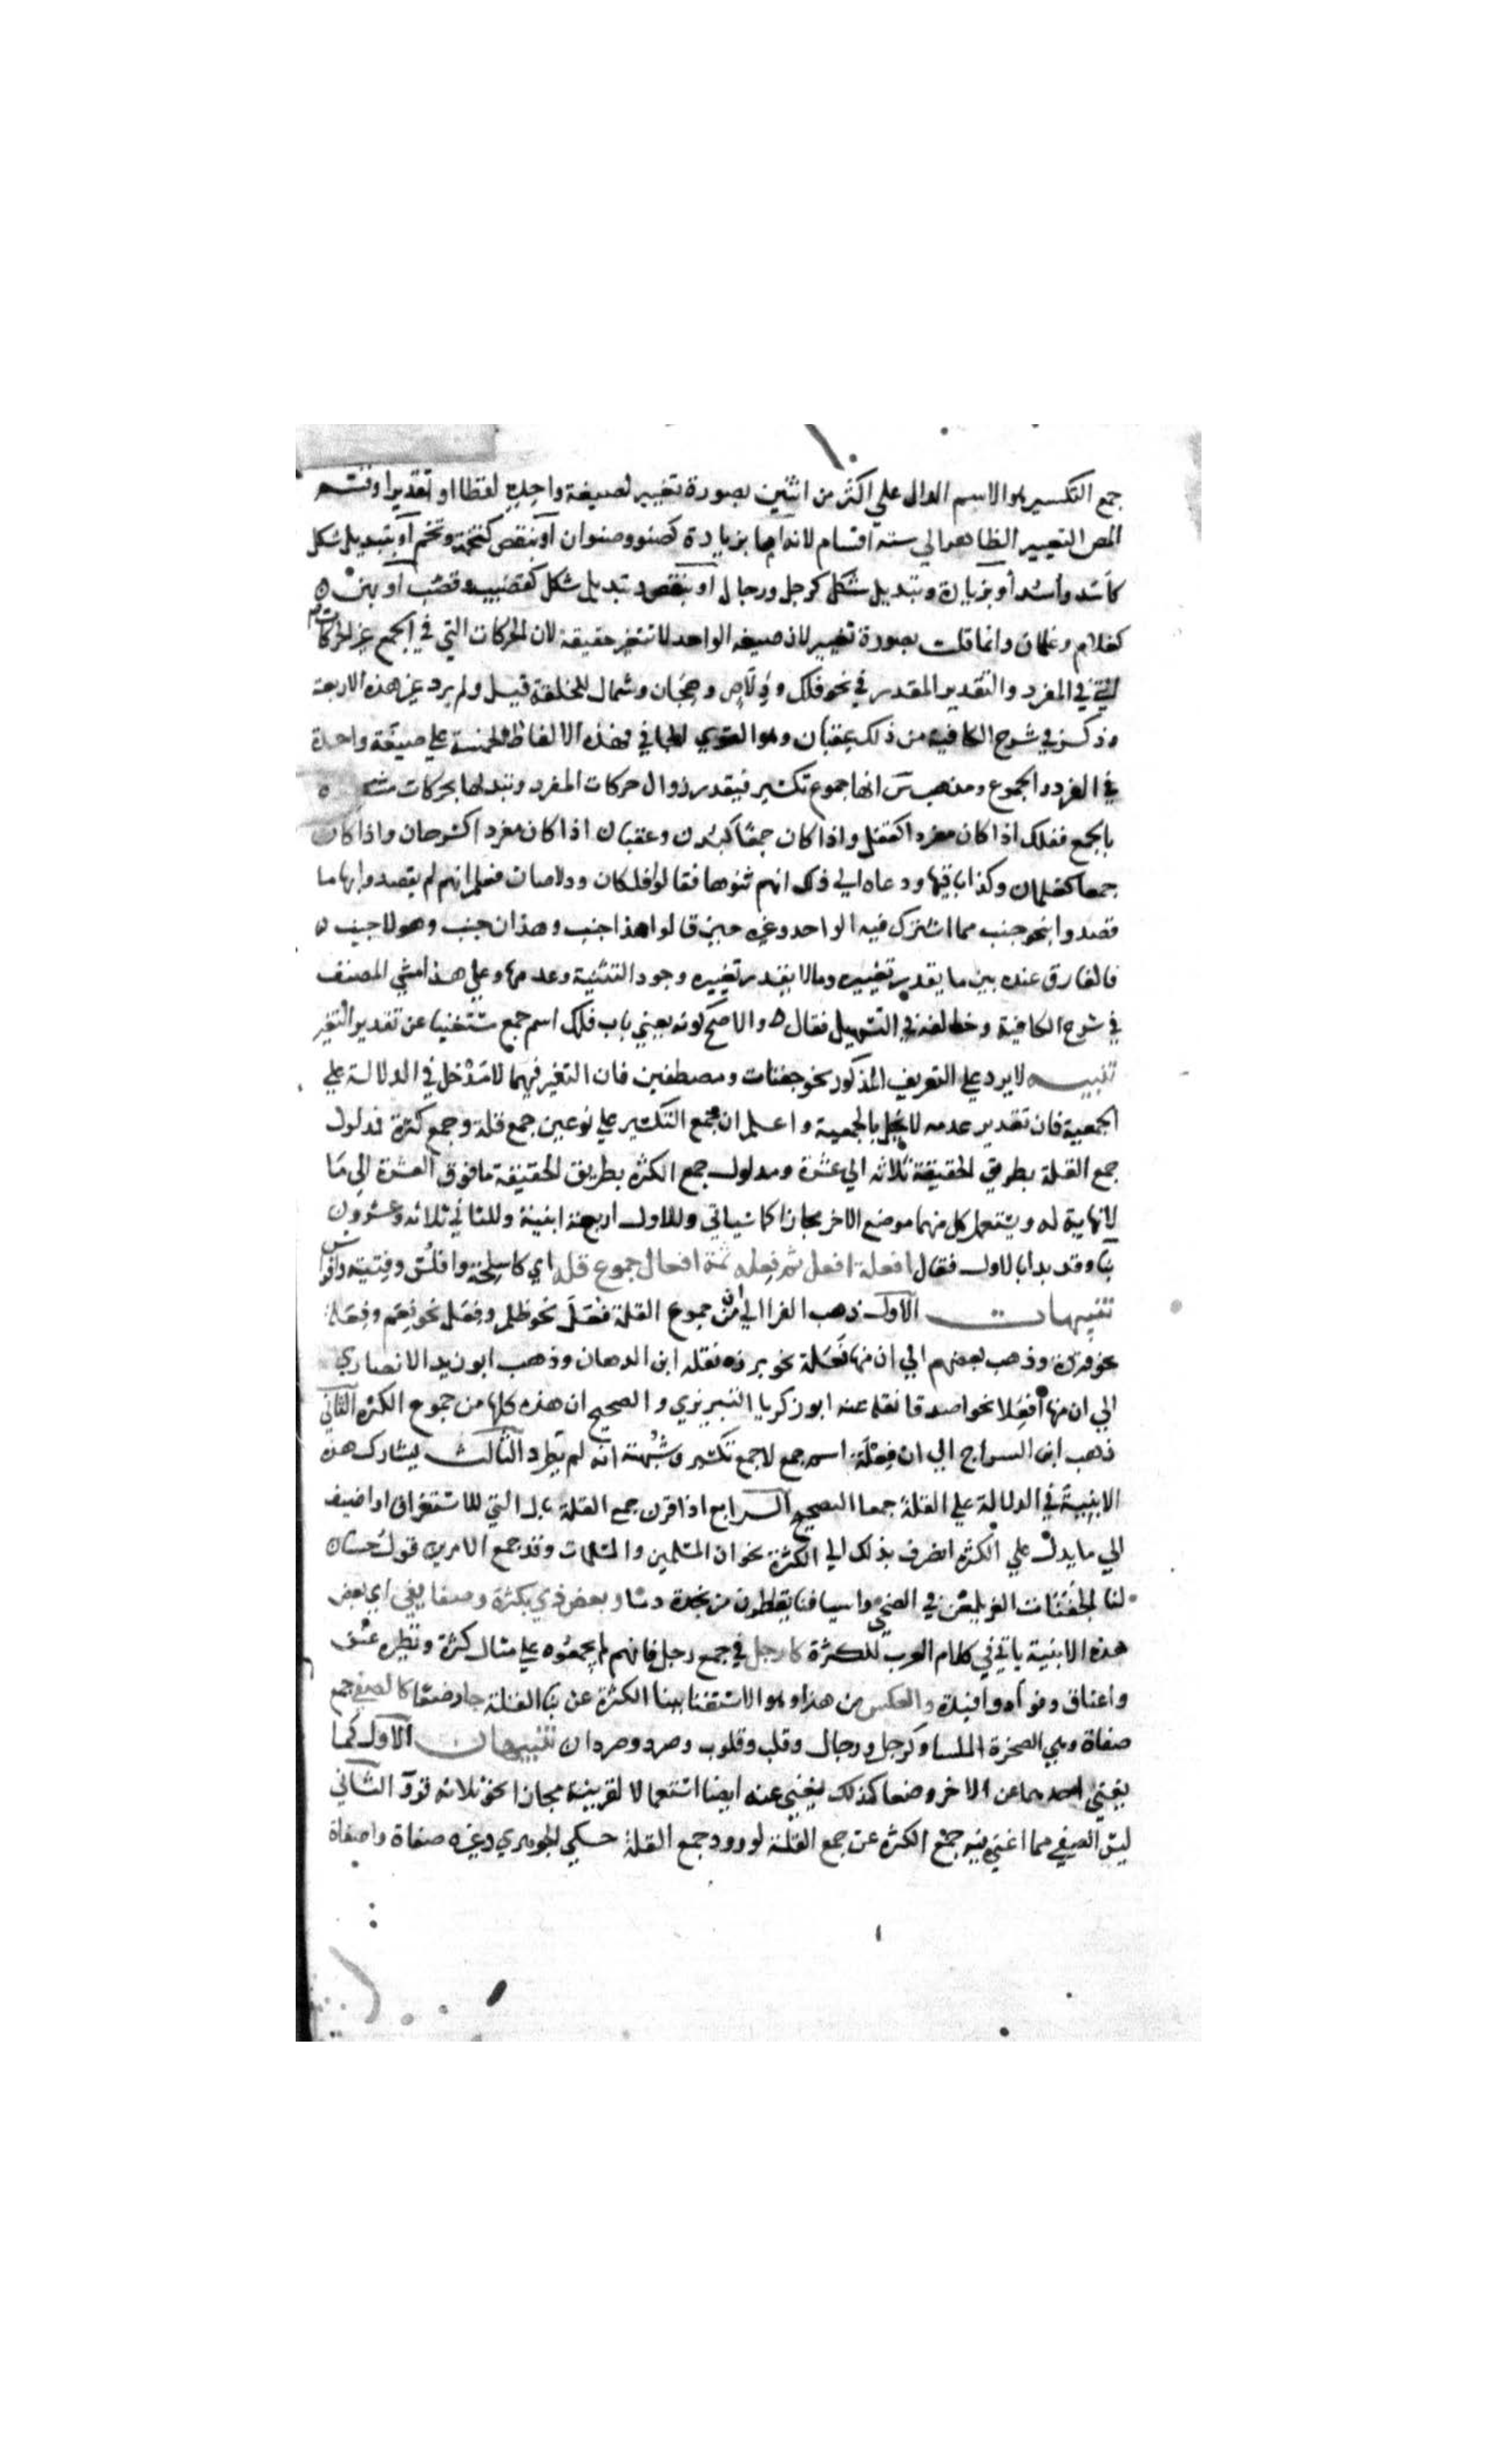 جمع التكسير هو الاسم الدال علي اكثر من اثنين بصورة تغيير لصيغة واحده لفظا او تقديرا وقسم
المص التغيير الظاهر الي ستة اقسام لانه اما بزيادة كصنو وصنوان او بنقص كتخمة وتخم او بتبديل شكل
كاَسَد واُسْد أو بزيادة وتبديل شكل كرجل ورجال او بنقص وتبديل شكل كقضيب وقضب او بهن
كغلام وغلمان وانما قلت بصورة تغيير لان صيغة الواحد لا تتغير حقيقة لان الحركات التي في الجمع غير الحركات
التي في المفرد والتقدير المقدر في نحو فلك ودِلَاصٍ وهِجَان وشمال للخلقة قيل ولم يرد غير هذه الاربعة
وذكر في شرح الكافية من ذلك عفتان وهو القوي الجافي فهذه الالفاظ الخمسة علي صيغة واحدة
في المفرد والجموع ومذهب س انها جموع تكسير فيقدر زوال حركات المفرد وتبدلها بحركات مشعرة
بالجمع ففلك اذا كان مفردا كقفل واذا كان جمعًا كبُدن وعفتان اذا كان مفردا كسرحان واذا كان
جمعا كغلمان وكذا باقيها ودعاه الي ذلك انهم ثنوها فقالوا فلكان ودلاصان فعلم انهم لم يقصدوا بها ما
قصدوا بنحو جنب مما اشترك فيه الواحد وغيره حين قالوا هذا جنب وهذان جنب وهولا جنب
فالفارق عنده بين ما يقدر تغييره وما لا يقدر تغييره وجود التثنية وعدمها وعلي هذا مشي المصنف
في شرح الكافية وخالفه في التسهيل فقال والاصح كونه يعني باب فلك اسم جمع مستغنيا عن تقدير التغير
تنبيـــه لا يرد علي التعريف المذكور نحو جفنات ومصطفين فان التغير فيهما لا مَدْخل في الدلالة علي
الجمعية فان تقدير عدمه لا يخل بالجمعية واعلم ان جمع التكسير علي نوعين جمع قلة وجمع كثرة فمدلول
جمع القلة بطريق الحقيقة ثلاثه الي عشرة ومدلول جمع الكثرة بطريق الحقيقة ما فوق العشرة الي مَا
لا نهاية له ويستعمل كل منهما موضع الاخر مجازا كما سياتي وللاول اربعة ابنية وللثاني ثلاثه وعشرون
بنا وقد بدا بالاول فقال افعلة افعل ثم فِعله ثمة افعال جموع قله اي كاسلحة وافلُس وفِتية وافراس
تنبيهات الاول ذهب الفرا الي ان من جموع القلة فُعَلَ نحو ظلم وفِعَل نحو نِعَم وفِعَلة
نحو قردة وذهب بعضهم الي ان منها فَعَلة نحو بررة نقله ابن الدهان وذهب ابو زيد الانصاري
الي ان منها أفعِلا نحو اصدقا نقله عنه ابو زكريا التبريزي والصحيح ان هذه كلها من جموع الكثره الثاني
ذهب ابن السراج الي ان فِعْلَة اسم جمع لا جمع تكسير وشُبهته انه لم يطرد الثالث يشارك هذه
الابنيةَ في الدلالة علي القلة جمعا التصحيح الرابع اذا قرن جمع القلة بال التي للاستغراق او اضيف
الي ما يدل علي الكثره انصرف بذلك الي الكثرة نحو ان المسلمين والمسلمات وقد جمع الامرين قول حسان
لنا الجَفَنَات الغر يلمعن في الضحي واسيافنا يقطرن من نجدة دما وبعض ذي بكثرة وضعا يفي اي بعض
هذه الابنية ياتي في كلام العرب للكثرة كارجل في جمع رجل فانهم لم يجمعوه علي مثال كثرة ونظيره عنق
واعناق وفواد وافئدة والعكس من هذا وهو الاستغنا ببنا الكثرة عن بنا القلة جا وضعًا كالصفي جمع
صفاة وهي الصخرة الملسا وكرجل ورجال وقلب وقلوب وصرد وصردان تنبيهان الاول كما
يغني احدهما عن الاخر وضعا كذلك يغني عنه ايضا استعمالا لقرينة مجازا نحو ثلاثة قروء الثاني
ليس الصفي مما اغني فيه جمع الكثره عن جمع القلة لورود جمع القلة حكي الجوهري وغيره صفاة واصفاة